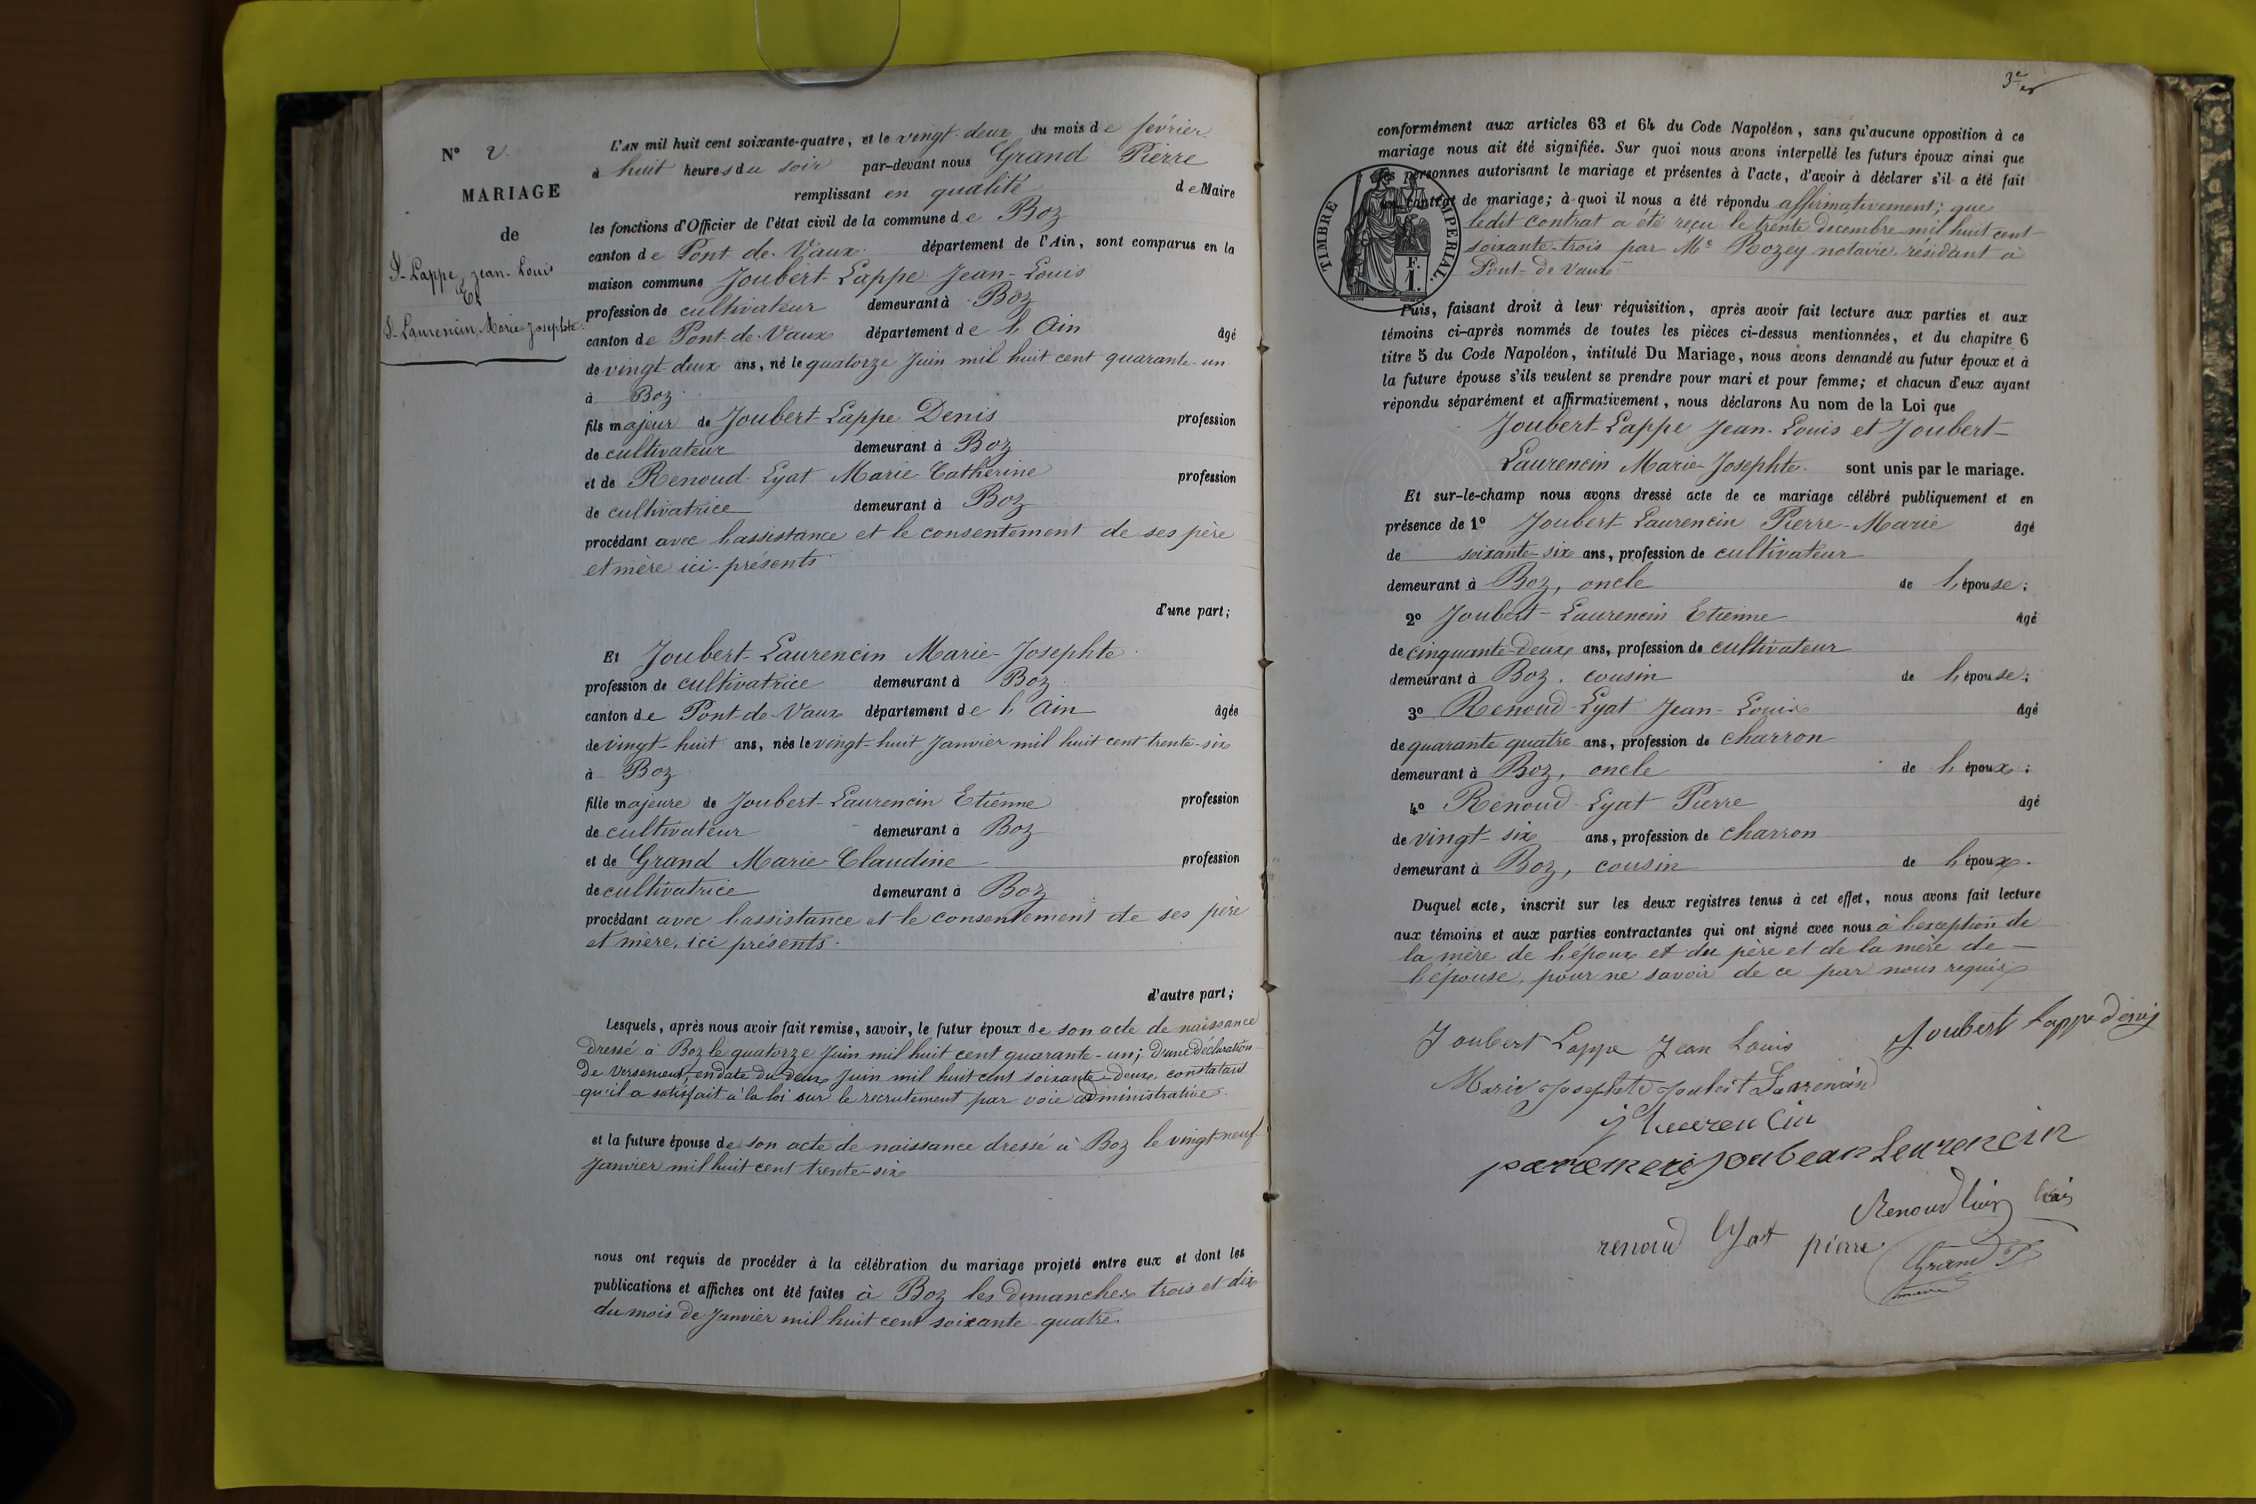 N° 2.
MARIAGE
de
J-Lappe Jean-Louis
Et
J-Laurencin Marie Josephte.
L'AN mil huit cent soixante-quatre, et le vingt-deux du mois de février
à huit heures du soir par-devant nous Grand Pierre
remplissant en qualité de Maire
les fonctions d'Officier de l'état civil de la commune de Boz
canton de Pont-de-Vaux département de l'Ain, sont comparus en la
maison commune Joubert-Lappe Jean-Louis
profession de cultivateur demeurant à Boz
canton de Pont-de-Vaux département de l'Ain âgé
de vingt-deux ans, né le quatorze Juin mil huit cent quarante-un
à Boz
fils majeur de Joubert-Lappe Denis profession
de cultivateur demeurant à Boz
et de Renoud-Lyat Marie-Catherine profession
de cultivatrice demeurant à Boz
procédant avec l'assistance et le consentement de ses père
et mère ici-présents
d'une part;
Et Joubert-Laurencin Marie-Josephte
profession de cultivatrice demeurant à Boz
canton de Pont-de-Vaux département de l'Ain âgée
de vingt-huit ans, née le vingt-huit Janvier mil huit cent trente-six
à Boz
fille majeure de Joubert-Laurencin Etienne profession
de cultivateur demeurant à Boz
et de Grand Marie-Claudine profession
de cultivatrice demeurant à Boz
procédant avec l'assistance et le consentement de ses père
et mère, ici présents.
d'autre part;
Lesquels, après nous avoir fait remise, savoir, le futur époux de son acte de naissance
dressé à Boz le quatorze Juin mil huit cent quarante-un; d'une déclaration
de versement, en date du deux Juin mil huit cent soixante-deux, constatant
qu'il a satisfait à la loi sur le recrutement par voie administrative.
et la future épouse de son acte de naissance dressé à Boz le vingt-neuf
Janvier mil huit cent trente-six
nous ont requis de procéder à la célébration du mariage projeté entre eux et dont les
publications et affiches ont été faites à Boz les dimanches trois et dix
du mois de Janvier mil huit cent soixante-quatre.
3e
conformément aux articles 63 et 64 du Code Napoléon, sans qu'aucune opposition à ce
mariage nous ait été signifiée. Sur quoi nous avons interpellé les futurs époux ainsi que
les personnes autorisant le mariage et présentes à l'acte, d'avoir à déclarer s'il a été fait
un contrat de mariage; à quoi il nous a été répondu affirmativement; que
ledit contrat a été reçu le trente decembre mil huit cent
soixante-trois par Me Rozey notaire résidant à
Pont-de-Vaux
TIMBRE IMPÉRIAL.
F.
1.
Puis, faisant droit à leur réquisition, après avoir fait lecture aux parties et aux
témoins ci-après nommés de toutes les pièces ci-dessus mentionnées, et du chapitre 6
titre 5 du Code Napoléon, intitulé Du Mariage, nous avons demandé au futur époux et à
la future épouse s'ils veulent se prendre pour mari et pour femme; et chacun d'eux ayant
répondu séparément et affirmativement, nous déclarons Au nom de la Loi que
Joubert-Lappe Jean-Louis et Joubert-
Laurencin Marie-Josephte. sont unis par le mariage.
Et sur-le-champ nous avons dressé acte de ce mariage célébré publiquement et en
présence de 1° Joubert-Laurencin Pierre-Marie âgé
de soixante-six ans, profession de cultivateur
demeurant à Boz, oncle de l'épouse;
2° Joubert-Laurencin Etienne âgé
de cinquante-deux ans, profession de cultivateur
demeurant à Boz, cousin de l'épouse;
3° Renoud-Lyat Jean-Louis âgé
de quarante quatre ans, profession de charron
demeurant à Boz, oncle de l'époux;
4° Renoud-Lyat Pierre âgé
de vingt-six ans, profession de charron
demeurant à Boz, cousin de l'époux.
Duquel acte, inscrit sur les deux registres tenus à cet effet, nous avons fait lecture
aux témoins et aux parties contractantes qui ont signé avec nous à l'exception de
la mère de l'époux et du père et de la mère de
l'épouse, pour ne savoir de ce par nous requis
Joubert Lappe Jean Louis
Joubert Lappe denis
Marie Josephte Joubert Laurencin
renoud lyat pierre
Grand P
maire